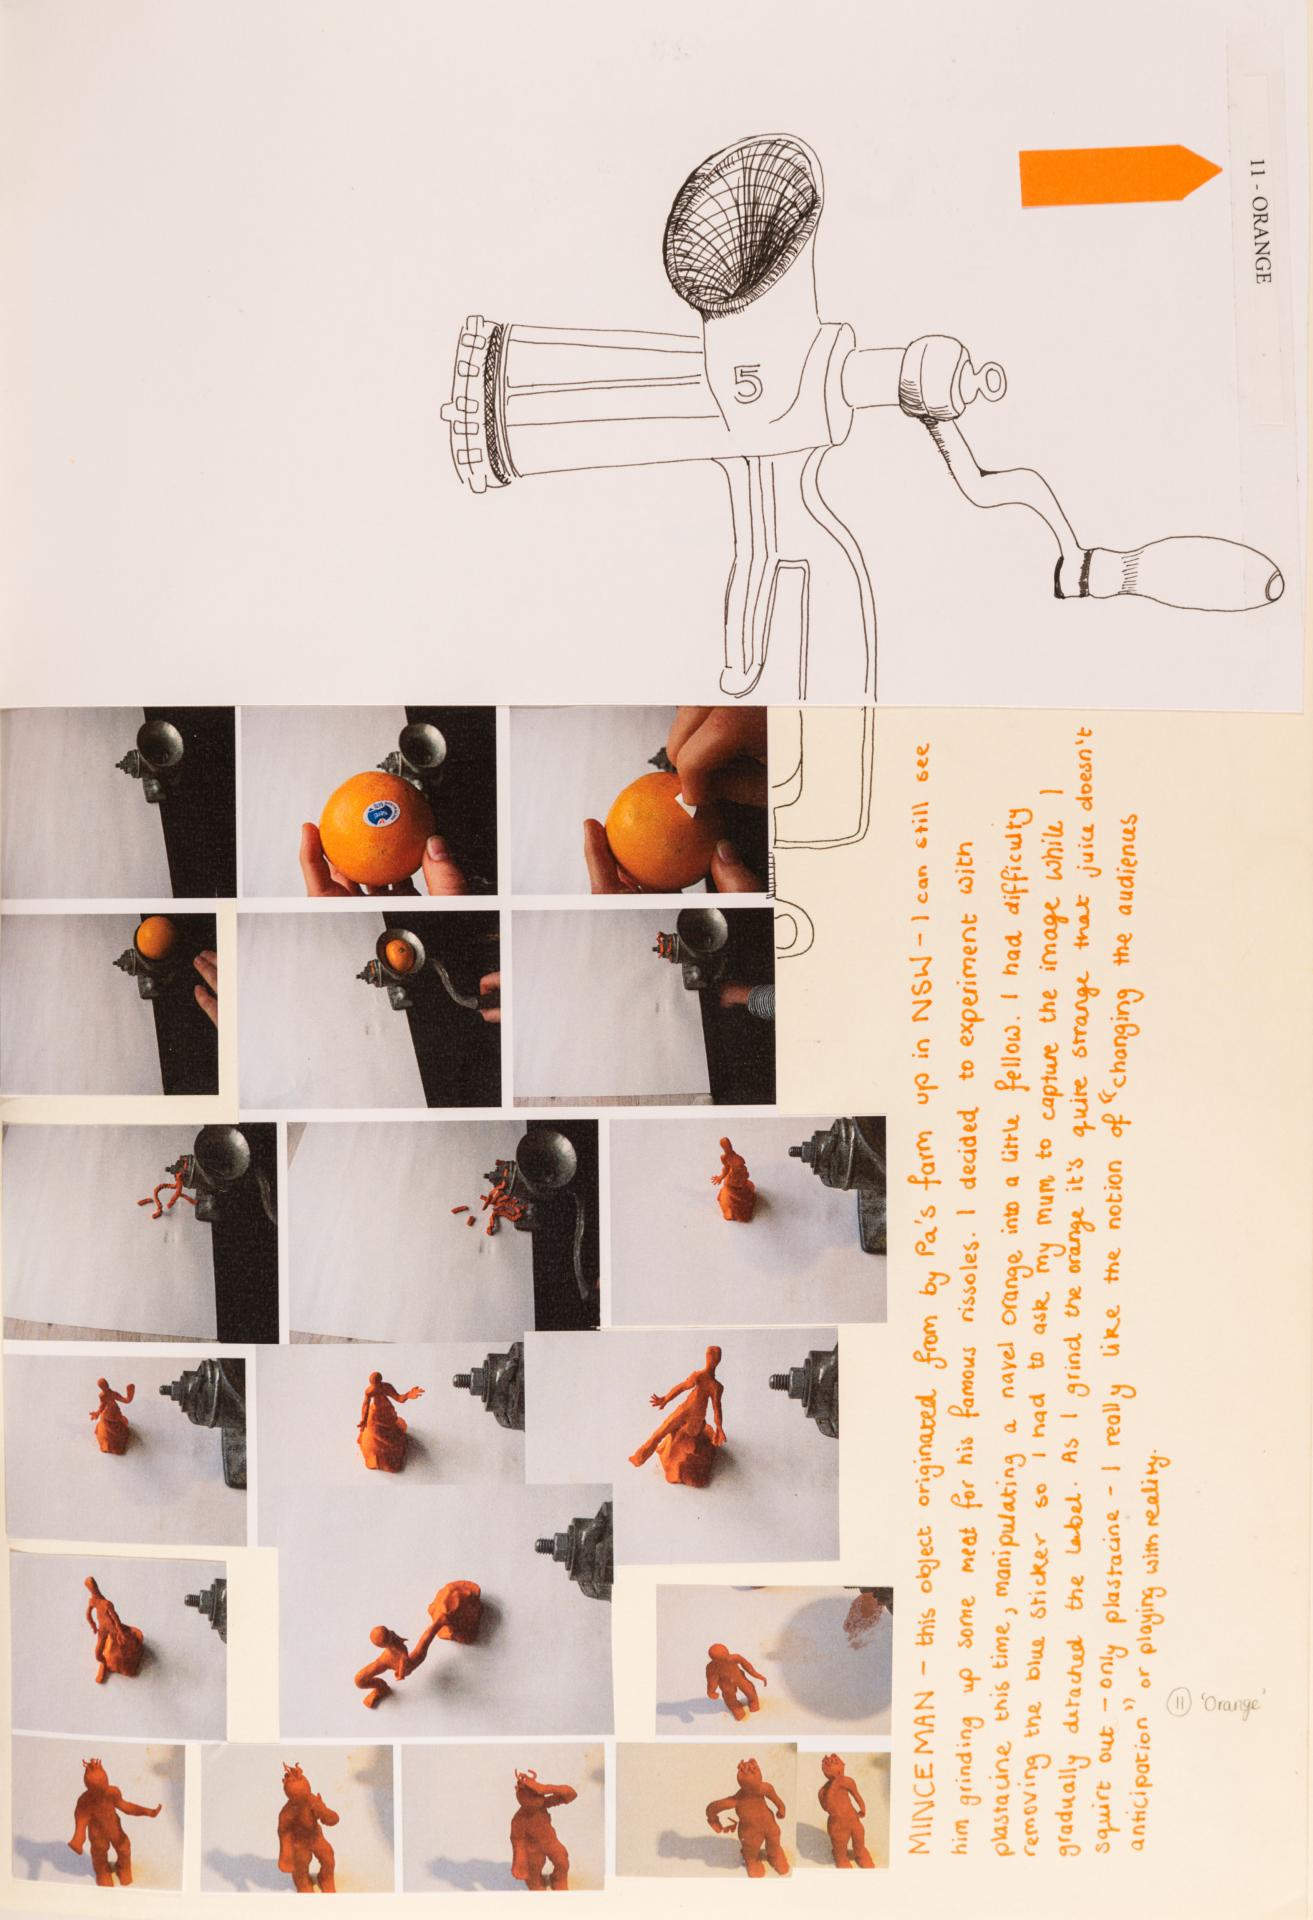 11 - ORANGE
5
MINCE MAN - this object originated from by Pa's farm up in NSW - I can still see
him grinding up some meat for his famous rissoles. I decided to experiment with
plastacine this time, manipulating a navel orange into a little fellow. I had difficulty
removing the blue sticker so I had to ask my mum to capture the image while I
gradually detached the label. As I grind the orange it's quite strange that juice doesn't
squirt out - only plastacine - I really like the notion of "changing the audiences
anticipation" or playing with reality.
11 'Orange'